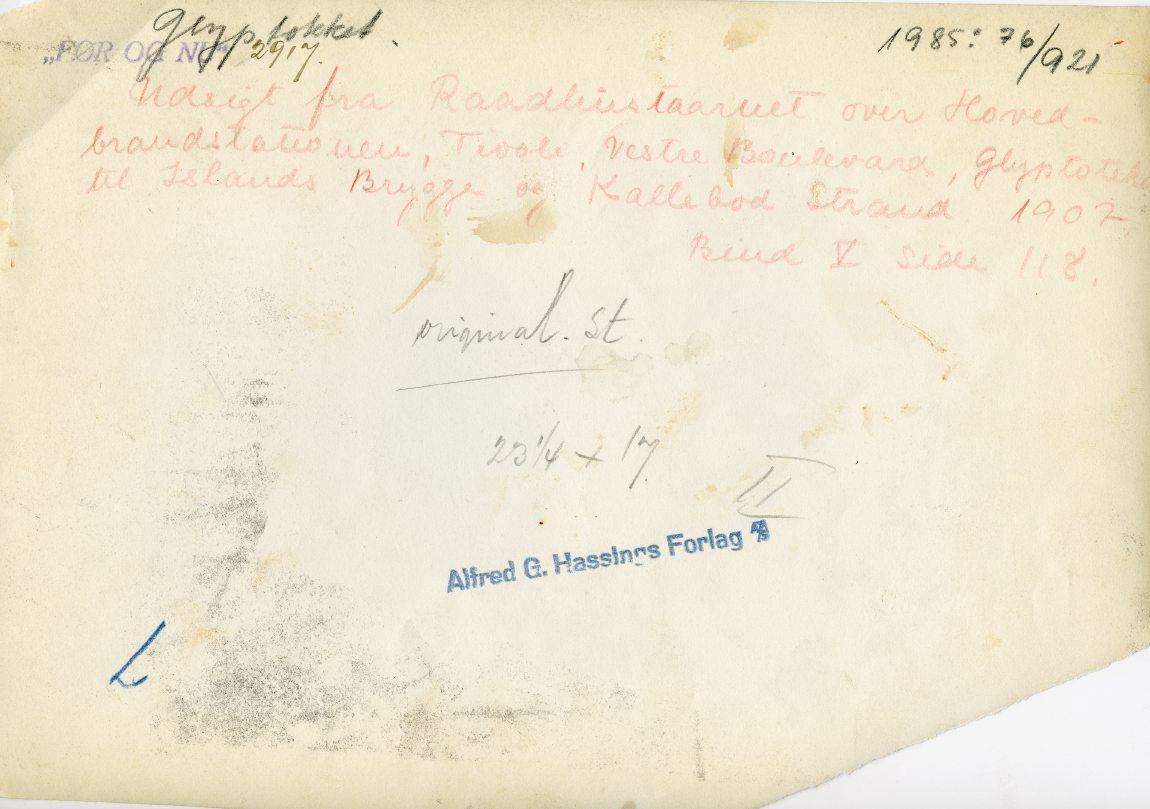 Glyptokket.
„FØR OG NU“ 2917.
1985: 76/921
Udsigt fra Raadhustaarnet over Hoved-
brandstationen, Tivoli, Vestre Boulevard, Glyptoteke
til Islands Brygge og Kallebod Strand 1907.
Bind V Side 118.
original. St.
23 1/4 x 17
II
Alfred G. Hassings Forlag A/S